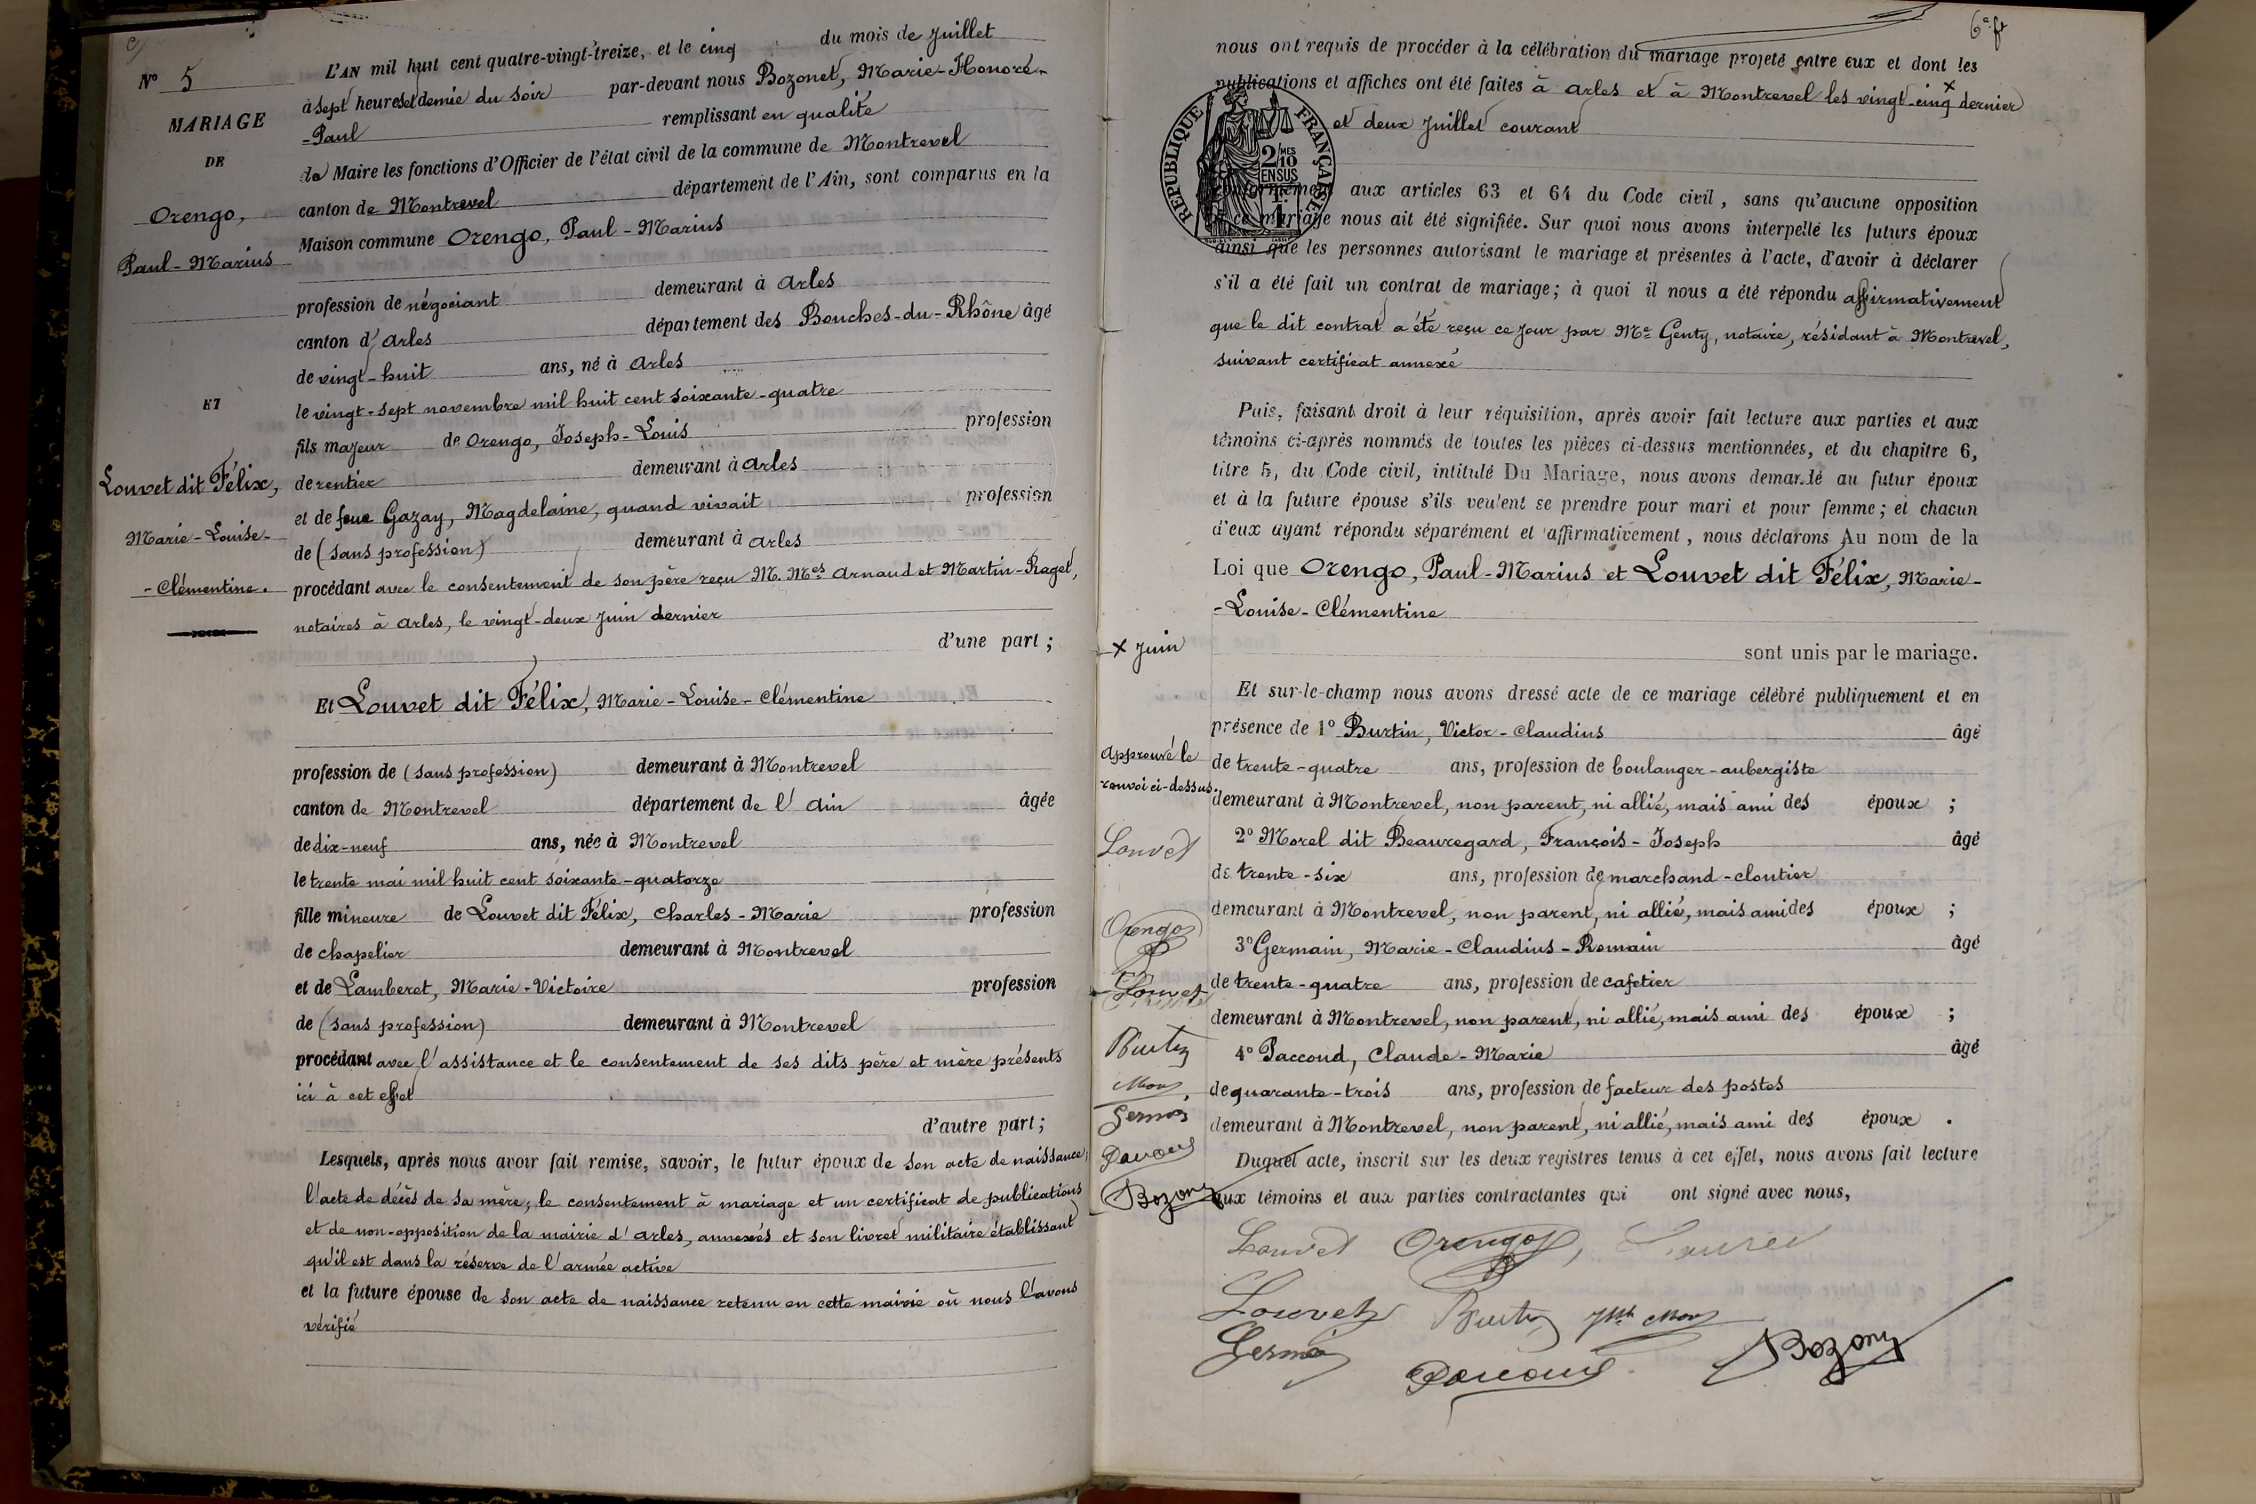 N° 5
MARIAGE
DE
Orengo,
Paul-Marius
ET
Louvet dit Félix,
Marie-Louise-
-Clémentine.
L'AN mil huit cent quatre-vingt-treize, et le cinq du mois de Juillet
à sept heures et demie du soir par-devant nous Bozonet, Marie-Honoré-
-Paul remplissant en qualité
de Maire les fonctions d'Officier de l'état civil de la commune de Montrevel
canton de Montrevel département de l'Ain, sont comparus en la
Maison commune Orengo, Paul-Marius
profession de négociant demeurant à Arles
canton d'Arles département des Bouches-du-Rhône âgé
de vingt-huit ans, né à Arles
le vingt-sept novembre mil huit cent soixante-quatre
fils majeur de Orengo, Joseph-Louis profession
de rentier demeurant à Arles
et de feue Gazay, Magdelaine, quand vivait profession
de (sans profession) demeurant à Arles
procédant avec le consentement de son père reçu M. Mes Arnaud et Martin-Raget,
notaires à Arles, le vingt-deux Juin dernier
d'une part ;
Et Louvet dit Félix, Marie-Louise-Clémentine
profession de (sans profession) demeurant à Montrevel
canton de Montrevel département de l'Ain âgée
de dix-neuf ans, née à Montrevel
le trente mai mil huit cent soixante-quatorze
fille mineure de Louvet dit Félix, Charles-Marie profession
de chapelier demeurant à Montrevel
et de Lamberet, Marie-Victoire profession
de (sans profession) demeurant à Montrevel
procédant avec l'assistance et le consentement de ses dits père et mère présents
ici à cet effet
d'autre part ;
Lesquels, après nous avoir fait remise, savoir, le futur époux de son acte de naissance,
l'acte de décès de sa mère, le consentement à mariage et un certificat de publications
et de non-opposition de la mairie d'Arles, annexés et son livret militaire établissant
qu'il est dans la réserve de l'armée active
et la future épouse de son acte de naissance retenu en cette mairie où nous l'avons
vérifié
6e ft
nous ont requis de procéder à la célébration du mariage projeté entre eux et dont les
publications et affiches ont été faites à Arles et à Montrevel les vingt-cinq x dernier
et deux Juillet courant
RÉPUBLIQUE FRANÇAISE
2/10 MES
EN SUS
conformément aux articles 63 et 64 du Code civil, sans qu'aucune opposition
à ce mariage nous ait été signifiée. Sur quoi nous avons interpellé les futurs époux
ainsi que les personnes autorisant le mariage et présentes à l'acte, d'avoir à déclarer
s'il a été fait un contrat de mariage; à quoi il nous a été répondu affirmativement
que le dit contrat a été reçu ce jour par Me Genty, notaire, résidant à Montrevel,
suivant certificat annexé
Puis, faisant droit à leur réquisition, après avoir fait lecture aux parties et aux
témoins ci-après nommés de toutes les pièces ci-dessus mentionnées, et du chapitre 6,
titre 5, du Code civil, intitulé Du Mariage, nous avons demandé au futur époux
et à la future épouse s'ils veulent se prendre pour mari et pour femme ; et chacun
d'eux ayant répondu séparément et affirmativement, nous déclarons Au nom de la
Loi que Orengo, Paul-Marius et Louvet dit Félix, Marie-
-Louise-Clémentine
x Juin
sont unis par le mariage.
Et sur-le-champ nous avons dressé acte de ce mariage célébré publiquement et en
présence de 1° Burtin, Victor-Claudius âgé
de trente-quatre ans, profession de boulanger-aubergiste
demeurant à Montrevel, non parent, ni allié, mais ami des époux ;
2° Morel dit Beauregard, François-Joseph âgé
de trente-six ans, profession de marchand-cloutier
demeurant à Montrevel, non parent, ni allié, mais ami des époux ;
3° Germain, Marie-Claudius-Romain âgé
de trente-quatre ans, profession de cafetier
demeurant à Montrevel, non parent, ni allié, mais ami des époux ;
4° Paccoud, Claude-Marie âgé
de quarante-trois ans, profession de facteur des postes
demeurant à Montrevel, non parent, ni allié, mais ami des époux .
Duquel acte, inscrit sur les deux registres tenus à cet effet, nous avons fait lecture
aux témoins et aux parties contractantes qui ont signé avec nous,
Approuvé le
renvoi ci-dessus.
Louvet
Orengo
Louvet
Burtin
Germain
Paccoud
Bozonet
Louvet Orengo Louvet
Louvet Burtin
Germain Paccoud Bozonet